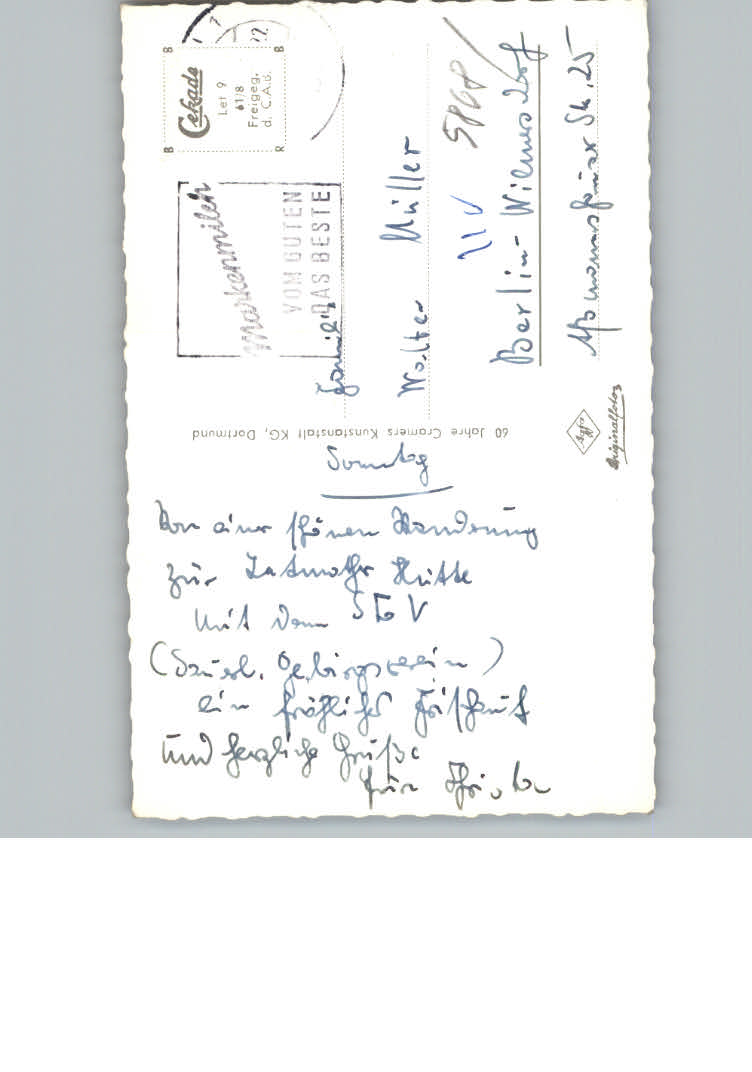 Sonntag
Von einer schönen Wanderung
zur Letmather Hütte
mit dem SGV
(Sauerl. Gebirgsverein)
ein fröhliches Frischauf
und herzliche Grüße
60 Jahre Cramers Kunstanstalt KG, Dortmund
Cekade
Let 9
61/8
Freigeg.
d. C.A.B.
Markenmilch
VOM GUTEN
DAS BESTE
Familie
Walter Müller
5868
Berlin-Wilmersdorf
Str. 25
Agfa
Originalfoto